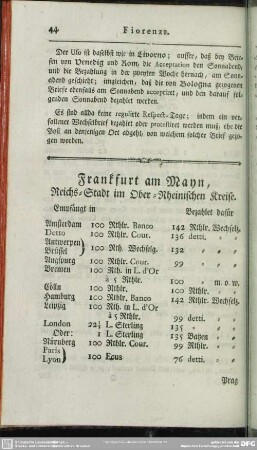 44 Fiorenza.
Der Uso ist daselbst wie in Livorno; ausser, daß bey Briefen
von Venedig und Rom, die Acceptation den Sonnabend,
und die Bezahlung in der zweyten Woche hernach, am Sonnabend
geschieht; ingleichen, daß die von Bologna gezogenen
Briefe ebenfalls am Sonnabend acceptiret, und den darauf folgenden
Sonnabend bezahlt werden.
Es sind allda keine regulirte Respect-Tage; indem ein verfallener
Wechselbrief bezahlet oder protestiret werden muß; ehe die
Post an denjenigen Ort abgeht, von welchem solcher Brief gezogen
worden.
Frankfurt am Mayn,
Reichs-Stadt im Ober-Rheinischen Kreise.
Empfängt in Bezahlet dafür
Amsterdam 100 Rthlr. Banco 142 Rthlr. Wechselz.
Detto 100 Rthlr. Cour. 136 detti.
Antwerpen
Brüssel } 100 Rth. Wechselg. 132
Augsburg 100 Rthlr. Cour. 99
Bremen 100 Rth. in L. d'Or
à 5 Rthlr. 100 m. o. w.
Cölln 100 Rthlr. 100 Rthlr.
Hamburg 100 Rthlr. Banco 142 Rthlr. Wechselz.
Leipzig 100 Rth. in L. d'Or
à 5 Rthlr. 99 Rthlr.
London 22½ L. Sterling 135
Oder: 1 L. Sterling 135 Batzen
Nürnberg 100 Rthlr. Cour. 99 Rthlr.
Paris
Lyon } 100 Ecus 76 detti.
Prag